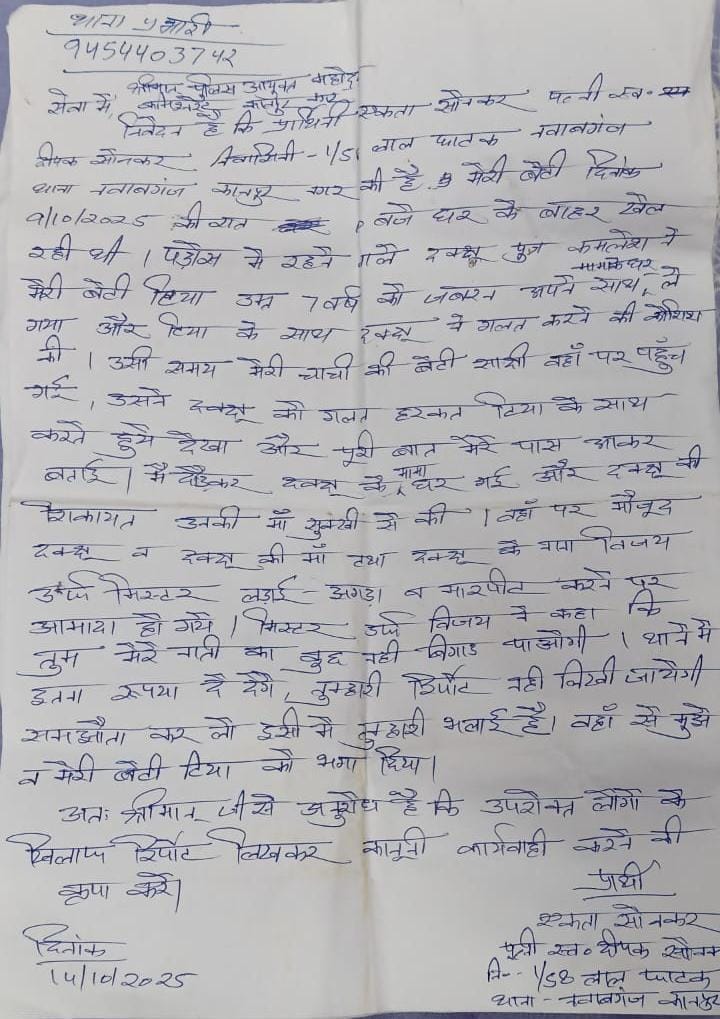 थाना प्रभारी
9454403742
श्रीमान पुलिस आयुक्त महोदय
सेवा में, कमिश्नरेट कानपुर नगर
निवेदन है कि प्रार्थिनी एकता सोनकर पत्नी स्व०
दीपक सोनकर निवासिनी - 1/58 लाल फाटक नवाबगंज
थाना नवाबगंज कानपुर नगर की है। मेरी बेटी दिनांक
9/10/2025 की रात बजे घर के बाहर खेल
रही थी। पड़ोस में रहने वाले दक्क्षू पुत्र कमलेश ने
मेरी बेटी दिया उम्र 7 वर्ष को जबरन अपने साथ, मामा के घर ले
गया और दिया के साथ दक्क्षू ने गलत करने की कोशिश
की। उसी समय मेरी चाची की बेटी साक्षी वहाँ पर पहुँच
गई, उसने दक्क्षू को गलत हरकत दिया के साथ
करते हुये देखा और पूरी बात मेरे पास आकर
बताई। मैं दौड़कर दक्क्षू के मामा घर गई और दक्क्षू की
शिकायत उनकी माँ से की। वहाँ पर मौजूद
दक्क्षू व दक्क्षू की माँ तथा दक्क्षू के विजय
उर्फ मिस्टर लड़ाई-झगड़ा व मारपीट करने पर
आमादा हो गये। मिस्टर उर्फ विजय ने कहा कि
तुम मेरे नाती का कुछ नही बिगाड़ पाओगी। थाने में
इतना रूपया दे देंगे, तुम्हारी रिर्पोट नही लिखी जायेगी
समझौता कर लो इसी में तुम्हारी भलाई है। वहाँ से मुझे
व मेरी बेटी दिया को भगा दिया।
अतः श्रीमान् जी से अनुरोध है कि उपरोक्त लोगों के
खिलाफ रिर्पोट लिखकर कानूनी कार्यवाही करने की
कृपा करें।
प्रार्थी
एकता सोनकर
पत्नी स्व० दीपक सोनकर
नि०- 1/58 लाल फाटक
थाना - नवाबगंज कानपुर
दिनांक
14/10/2025